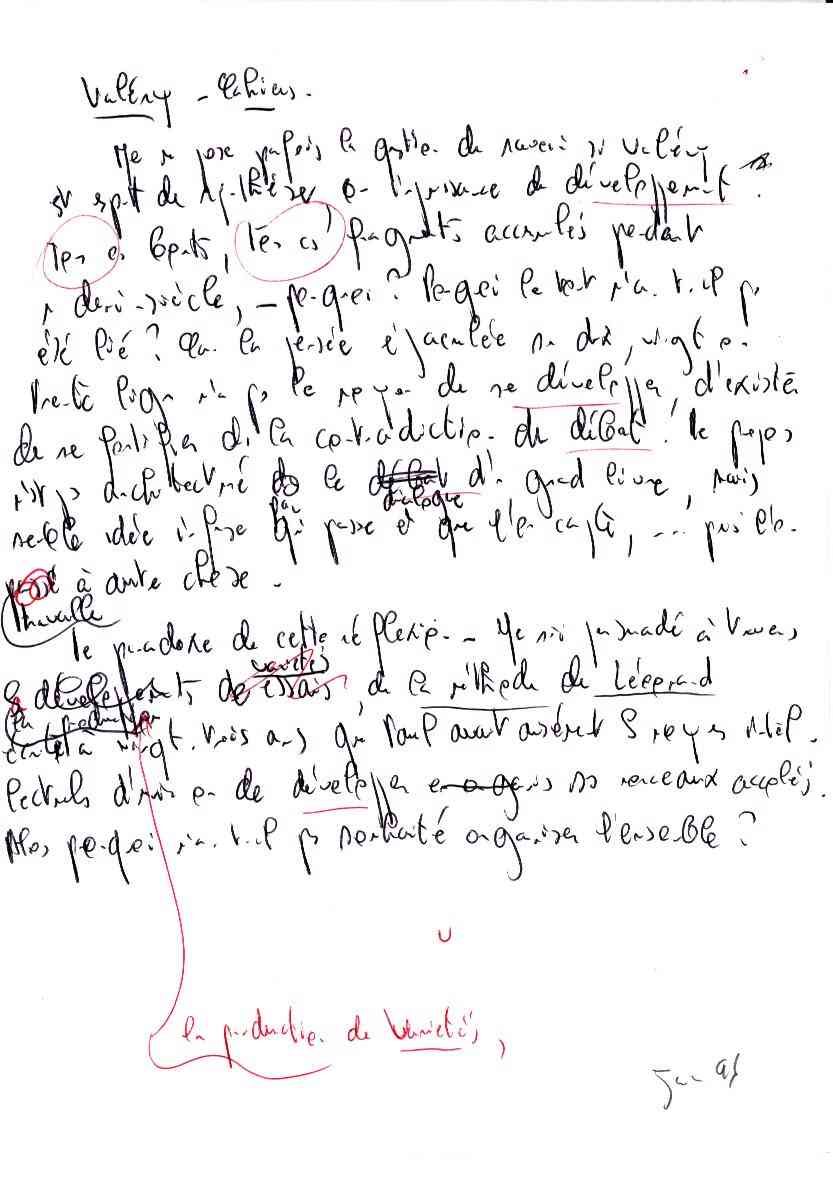 Valéry - Cahiers.
Je me pose parfois la question de savoir si Valéry
est esprit de synthèse ou l'impuissance de développement ?
Tous ces bouts, tous ces fragments accumulés pendant
un demi-siècle, - pourquoi ? Pourquoi le tout n'a-t-il pas
été lié ? Car la pensée éjaculée en dix, vingt ou
trente lignes n'a pas le moyen de se développer, d'exister
de se fortifier de la contradiction du débat ! le propos
n'est pas architecturé par le dialogue d'un grand livre, mais
semble idée qui passe et que l'on capte, ... puis l'on
à autre chose.
travaille
Le paradoxe de cette réflexion - Je suis persuadé à travers
la production Variétés de la méthode de Léonard
à vingt-trois ans que Paul avait aisément les moyens intel-
lectuels d'unir ou de développer ses morceaux accouplés.
Alors pourquoi n'a-t-il pas souhaité organiser l'ensemble ?
la production de Variétés,